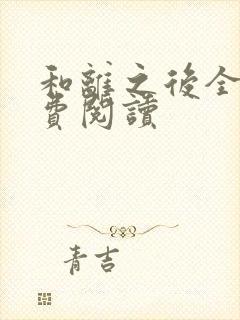 和離之後全
費閱讀
青吉